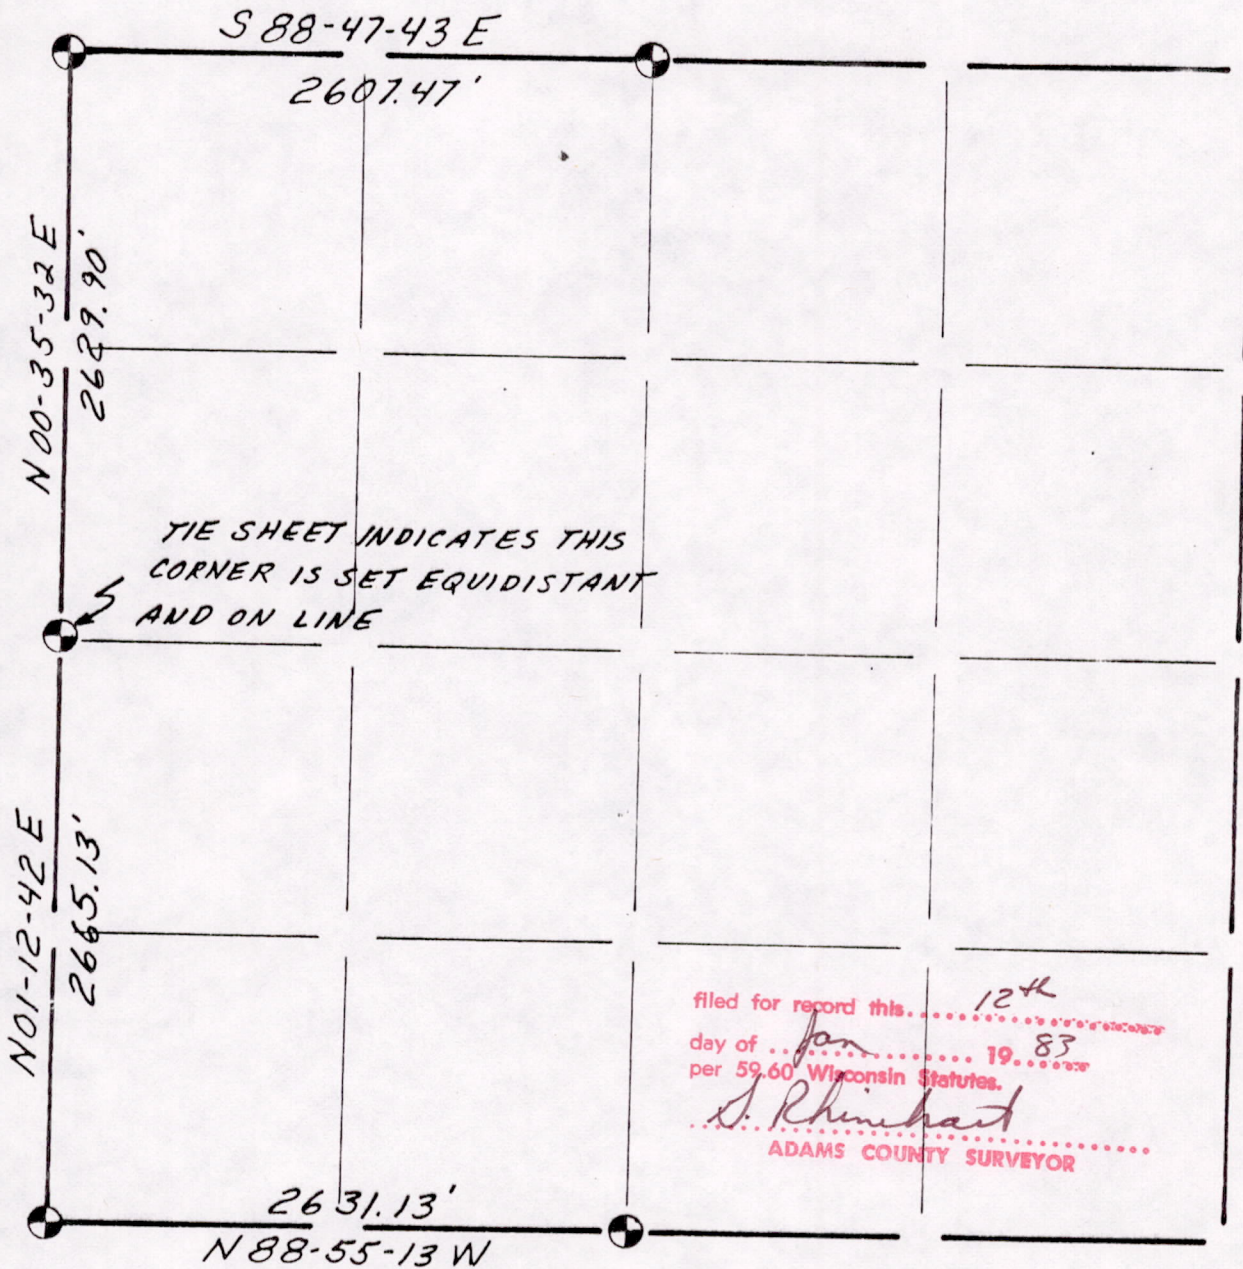 S 88-47-43 E
2607.47'
N 00-35-32 E
2629.90'
TIE SHEET INDICATES THIS
CORNER IS SET EQUIDISTANT
AND ON LINE
N01-12-42 E
2665.13'
filed for record this 12th
day of Jan 19 83
per 59.60 Wisconsin Statutes.
S. Rhinehart
ADAMS COUNTY SURVEYOR
2631.13'
N 88-55-13 W